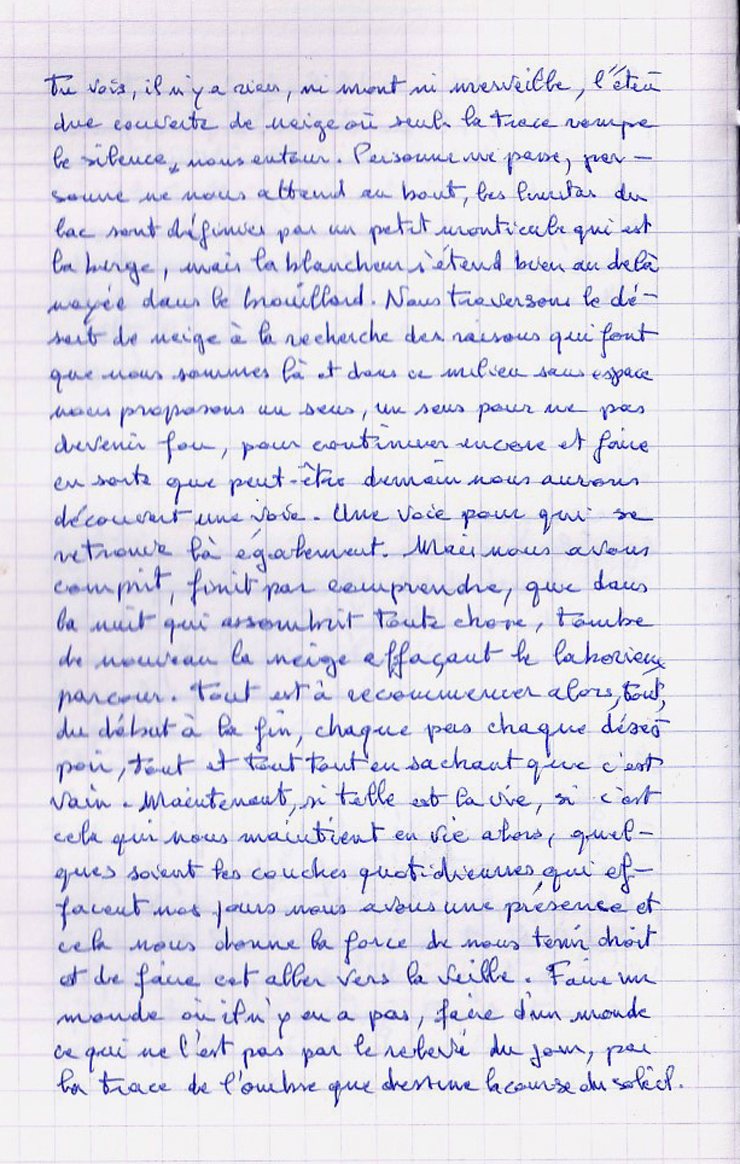 Tu vois, il n'y a rien, ni mont ni merveille, l'éten
due couverte de neige où seule la trace rompe
le silence, nous entour. Personne ne passe, per-
sonne ne nous attend au bout, les limites du
lac sont définies par un petit monticule qui est
la berge, mais la blancheur s'étend bien au delà
noyée dans le brouillard. Nous traversons le dé-
sert de neige à la recherche des raisons qui font
que nous sommes là et dans ce milieu sans espace
nous proposons un sens, un sens pour ne pas
devenir fou, pour continuer encore et faire
en sorte que peut-être demain nous aurons
découvert une voie. Une voie pour qui se
retrouve là également. Mais nous avons
comprit, finit par comprendre, que dans
la nuit qui assombrit toute chose, tombe
de nouveau la neige effaçant le laborieux
parcour. Tout est à recommencer alors, tout,
du début à la fin, chaque pas chaque déses
poir, tout et tout tout en sachant que c'est
vain. Maintenant, si telle est la vie, si c'est
cela qui nous maintient en vie alors, quel-
ques soient les couches quotidiennes qui ef-
facent nos jours nous avons une présence et
cela nous donne la force de nous tenir droit
et de faire cet aller vers la veille. Faire un
monde où il n'y en a pas, faire d'un monde
ce qui ne l'est pas par le du jour, par
la trace de l'ombre que dessine la course du soleil.